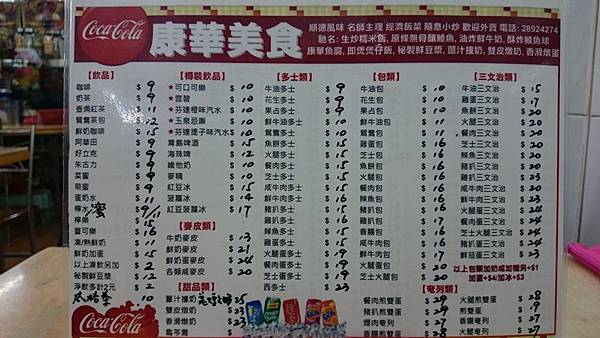 Coca-Cola
康華美食
順德風味 名師主理 經濟飯菜 隨意小炒 歡迎外賣 電話: 28924274
馳名: 生炒糯米飯, 原條無骨釀鯪魚, 油炸鮮牛奶, 酥炸鯪魚球
康華魚腐, 即煲煲仔飯, 秘製鮮豆漿, 薑汁撞奶, 雙皮燉奶, 香滑燉蛋
【飲品】
咖啡 $ 9
奶茶 $ 9
壺爛紅茶 $ 11
鴛鴦茶包 $ 12
鮮奶咖啡 $ 15
阿華田 $ 9
好立克 $ 9
朱古力 $ 9
菜蜜 $ 9
菊蜜 $ 9
蛋奶水 $ 11
檸水/蜜 $ 9/11
檸樂 $ 15
薑可樂 $ 16
凍/熱鮮奶 $ 11
鮮奶加蛋 $ 15
以上凍飲另加 $ 2
秘製鮮豆漿 $ 12
淨飲多計2元 $ 2
10
Coca-Cola
【樽裝飲品】
★可口可樂 $ 10
★雪碧 $ 10
★芬達橙味汽水 $ 10
★玉泉忌廉 $ 10
★芬達提子味汽水 $ 10
青島啤酒 $ 15
海珠啤 $ 12
維他奶 $ 10
麥精 $ 10
紅豆冰 $ 15
菠蘿冰 $ 14
紅豆菠蘿冰 $ 17
【麥皮類】
牛奶麥皮 $ 13
鮮奶麥皮 $ 21
鮮奶蛋麥皮 $ 24
各類咸麥皮 $ 20
【甜品類】
薑汁撞奶 25
雙皮燉奶 $ 23
香滑燉蛋 $ 23
龜苓膏 $
【多士類】
牛油多士 $ 9
花生多士 $ 9
果占多士 $ 9
鮮牛油多士 $ 10
鴛鴦多士 $ 10
魚餅多士 $ 15
雞蛋多士 $ 15
火腿多士 $ 15
餐肉多士 $ 15
芝士多士 $ 15
咸牛肉多士 $ 15
鮮牛肉多士 $ 16
豬扒多士 $ 15
辣魚多士 $ 15
雞蛋多士 $ 15
鮮油腿多士 $ 19
芝士腿多士 $ 19
芝士蛋多士 $ 19
西多士 $ 23
【包類】
牛油包 $ 10
花生包 $ 10
果占包 $ 10
鮮牛油包 $ 11
鴛鴦包 $ 11
雞蛋包 $ 16
芝士包 $ 16
魚餅包 $ 16
火腿包 $ 16
餐肉包 $ 16
辣魚包 $ 16
豬扒包 $ 16
豬扒包 $ 17
香腸包 $ 16
咸牛肉包 $ 16
鮮牛肉包 $ 17
火腿蛋包 $ 20
芝士火腿包 $ 20
芝士蛋包 $ 20
餐肉煎雙蛋 $ 29
豬扒煎雙蛋 $ 29
煙肉煎雙蛋 $ 29
香腸煎雙蛋 $ 29
【三文治類】
牛油三文治 $ 15
雞蛋三文治 $ 17
火腿三文治 $ 20
鮮油三文治 $ 20
芝士三文治 $ 20
辣魚三文治 $ 20
餐肉三文治 $ 20
芝士蛋三文治 $ 23
咸牛肉三文治 $ 20
魚餅蛋三文治 $ 24
火腿蛋三文治 $ 24
火腿蛋三文治 $ 24
香腸蛋三文治 $ 24
鮮牛蛋三文治 $ 24
鮮茄蛋三文治 $ 23
以上包類加奶或加糖另+$1
加蛋+$4/加冰+$3
【奄列類】
火腿煎雙蛋 $ 28
煎雙蛋 $ 19
香腸奄列 $ 27
火腿奄列 $ 27